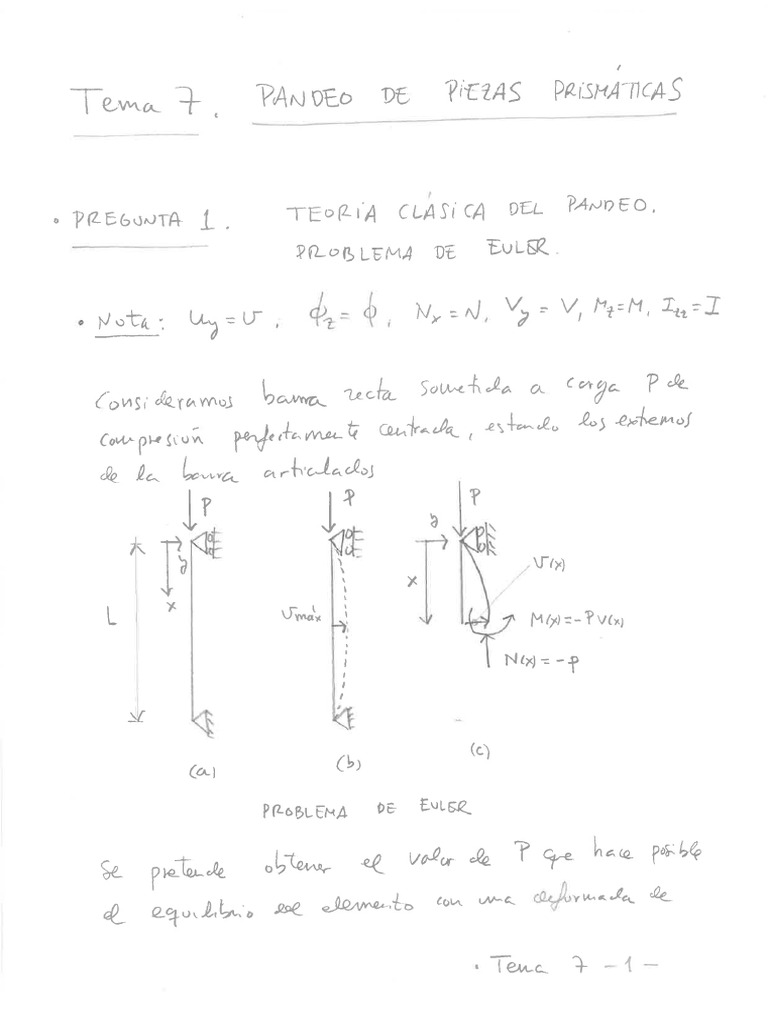 Tema 7. PANDEO DE PIEZAS PRISMÁTICAS
• PREGUNTA 1. TEORIA CLÁSICA DEL PANDEO.
PROBLEMA DE EULER.
• Nota: uy = v, ϕz = ϕ, Nx = N, Vy = V, Mz = M, Izz = I
Consideramos barra recta sometida a carga P de
compresión perfectamente centrada, estando los extremos
de la barra articulados
P P P
y y
x x
L
vmáx
v(x)
M(x) = -P v(x)
N(x) = -P
(a) (b) (c)
PROBLEMA DE EULER
Se pretende obtener el valor de P que hace posible
el equilibrio del elemento con una deformada de
• Tema 7 -1-